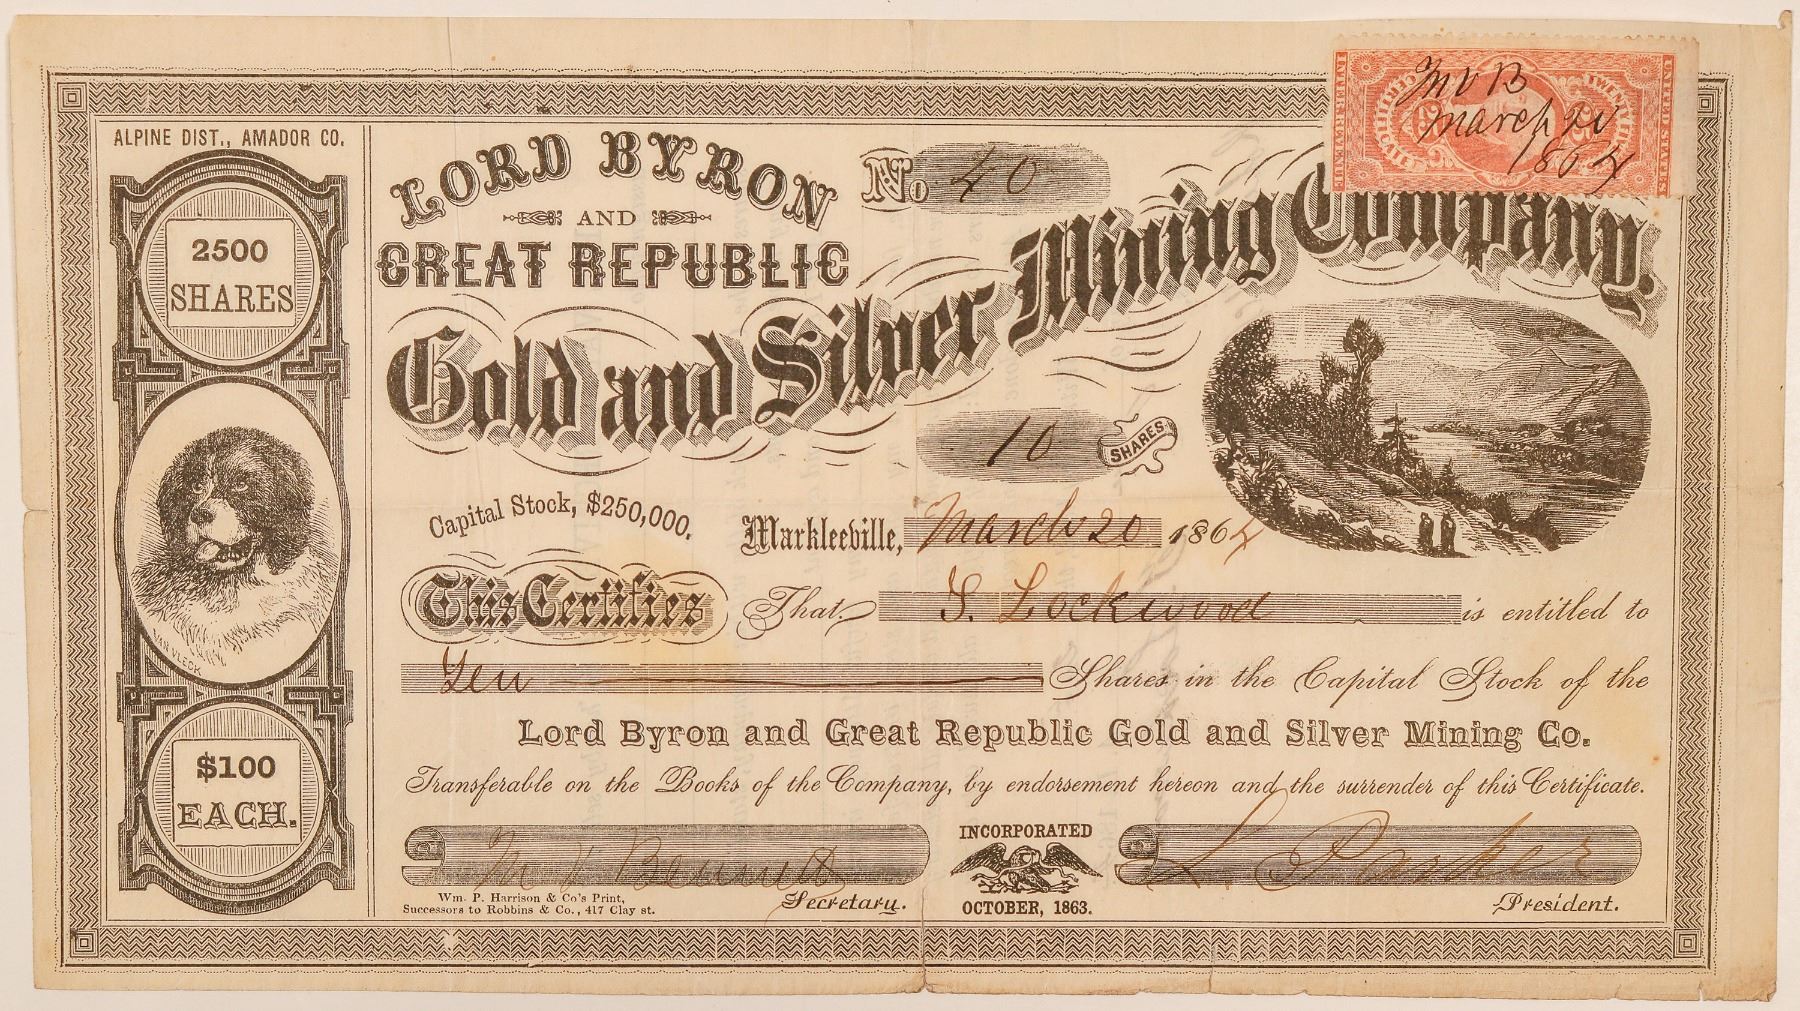 ALPINE DIST., AMADOR CO.
2500
SHARES
VAN VLECK
$100
EACH.
LORD BYRON
AND
GREAT REPUBLIC
No 40
Gold and Silver Mining Company.
10 SHARES
UNITED STATES
INTER. REVENUE
M V B
March 20
1864
Capital Stock, $250,000.
Markleeville, March 20 1864
This Certifies That. S. Lockwood is entitled to
Ten Shares in the Capital Stock of the
Lord Byron and Great Republic Gold and Silver Mining Co.
Transferable on the Books of the Company, by endorsement hereon and the surrender of this Certificate.
M V Bennett
Secretary.
Wm. P. Harrison & Co's Print,
Successors to Robbins & Co., 417 Clay st.
INCORPORATED
OCTOBER, 1863.
L. Parker
President.